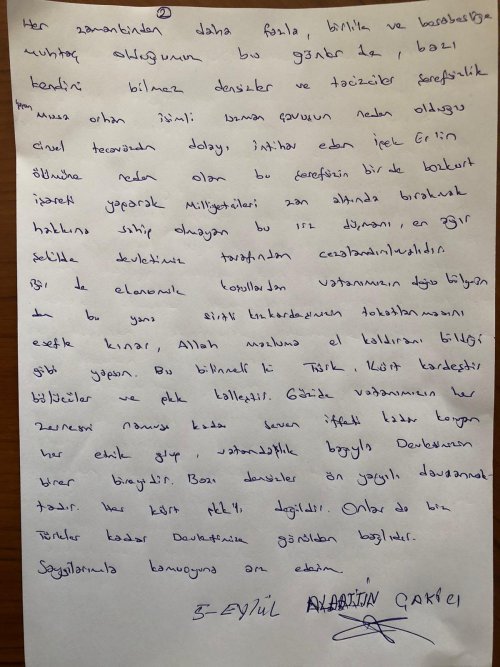 2
Her zamankinden daha fazla, birlik ve beraberliğe
muhtaç olduğumuz bu günler de, bazı
kendini bilmez densizler ve tacizciler şerefsizlik
yapan Musa orhan isimli uzman çavuşun neden olduğu
cinsel tecavüzden dolayı intihar eden ipek Er'in
ölümüne neden olan bu şerefsizin bir de bozkurt
işareti yaparak Milliyetcileri zan altında bırakmak
hakkına sahip olmayan bu ırz düşmanı, en ağır
şekilde devletimiz tarafından cezalandırılmalıdır.
Bir de ekonomik koşullardan vatanımızın doğu bölgesin
den bu yana kızkardeşimizin tokatlanmasını
esefle kınar, Allah mazluma el kaldıranı bildiği
gibi yapsın. Bu bilinmeli ki Türk, Kürt kardeştir
bölücüler ve pkk kalleştir. Gözide vatanımızın her
zerresini namusu kadar seven iffeti kadar koruyan
her etnik grup, vatandaşlık bağıyla Devletimizin
birer bireyidir. Bazı densizler ön yargılı davranmak-
tadır. Her kürt pkk'lı değildir. Onlar da biz
Türkler kadar Devletimize gönülden bağlıdır.
Saygılarımla kamuoyuna arz ederim.
5-EYLÜL ALAATTİN ÇAKICI